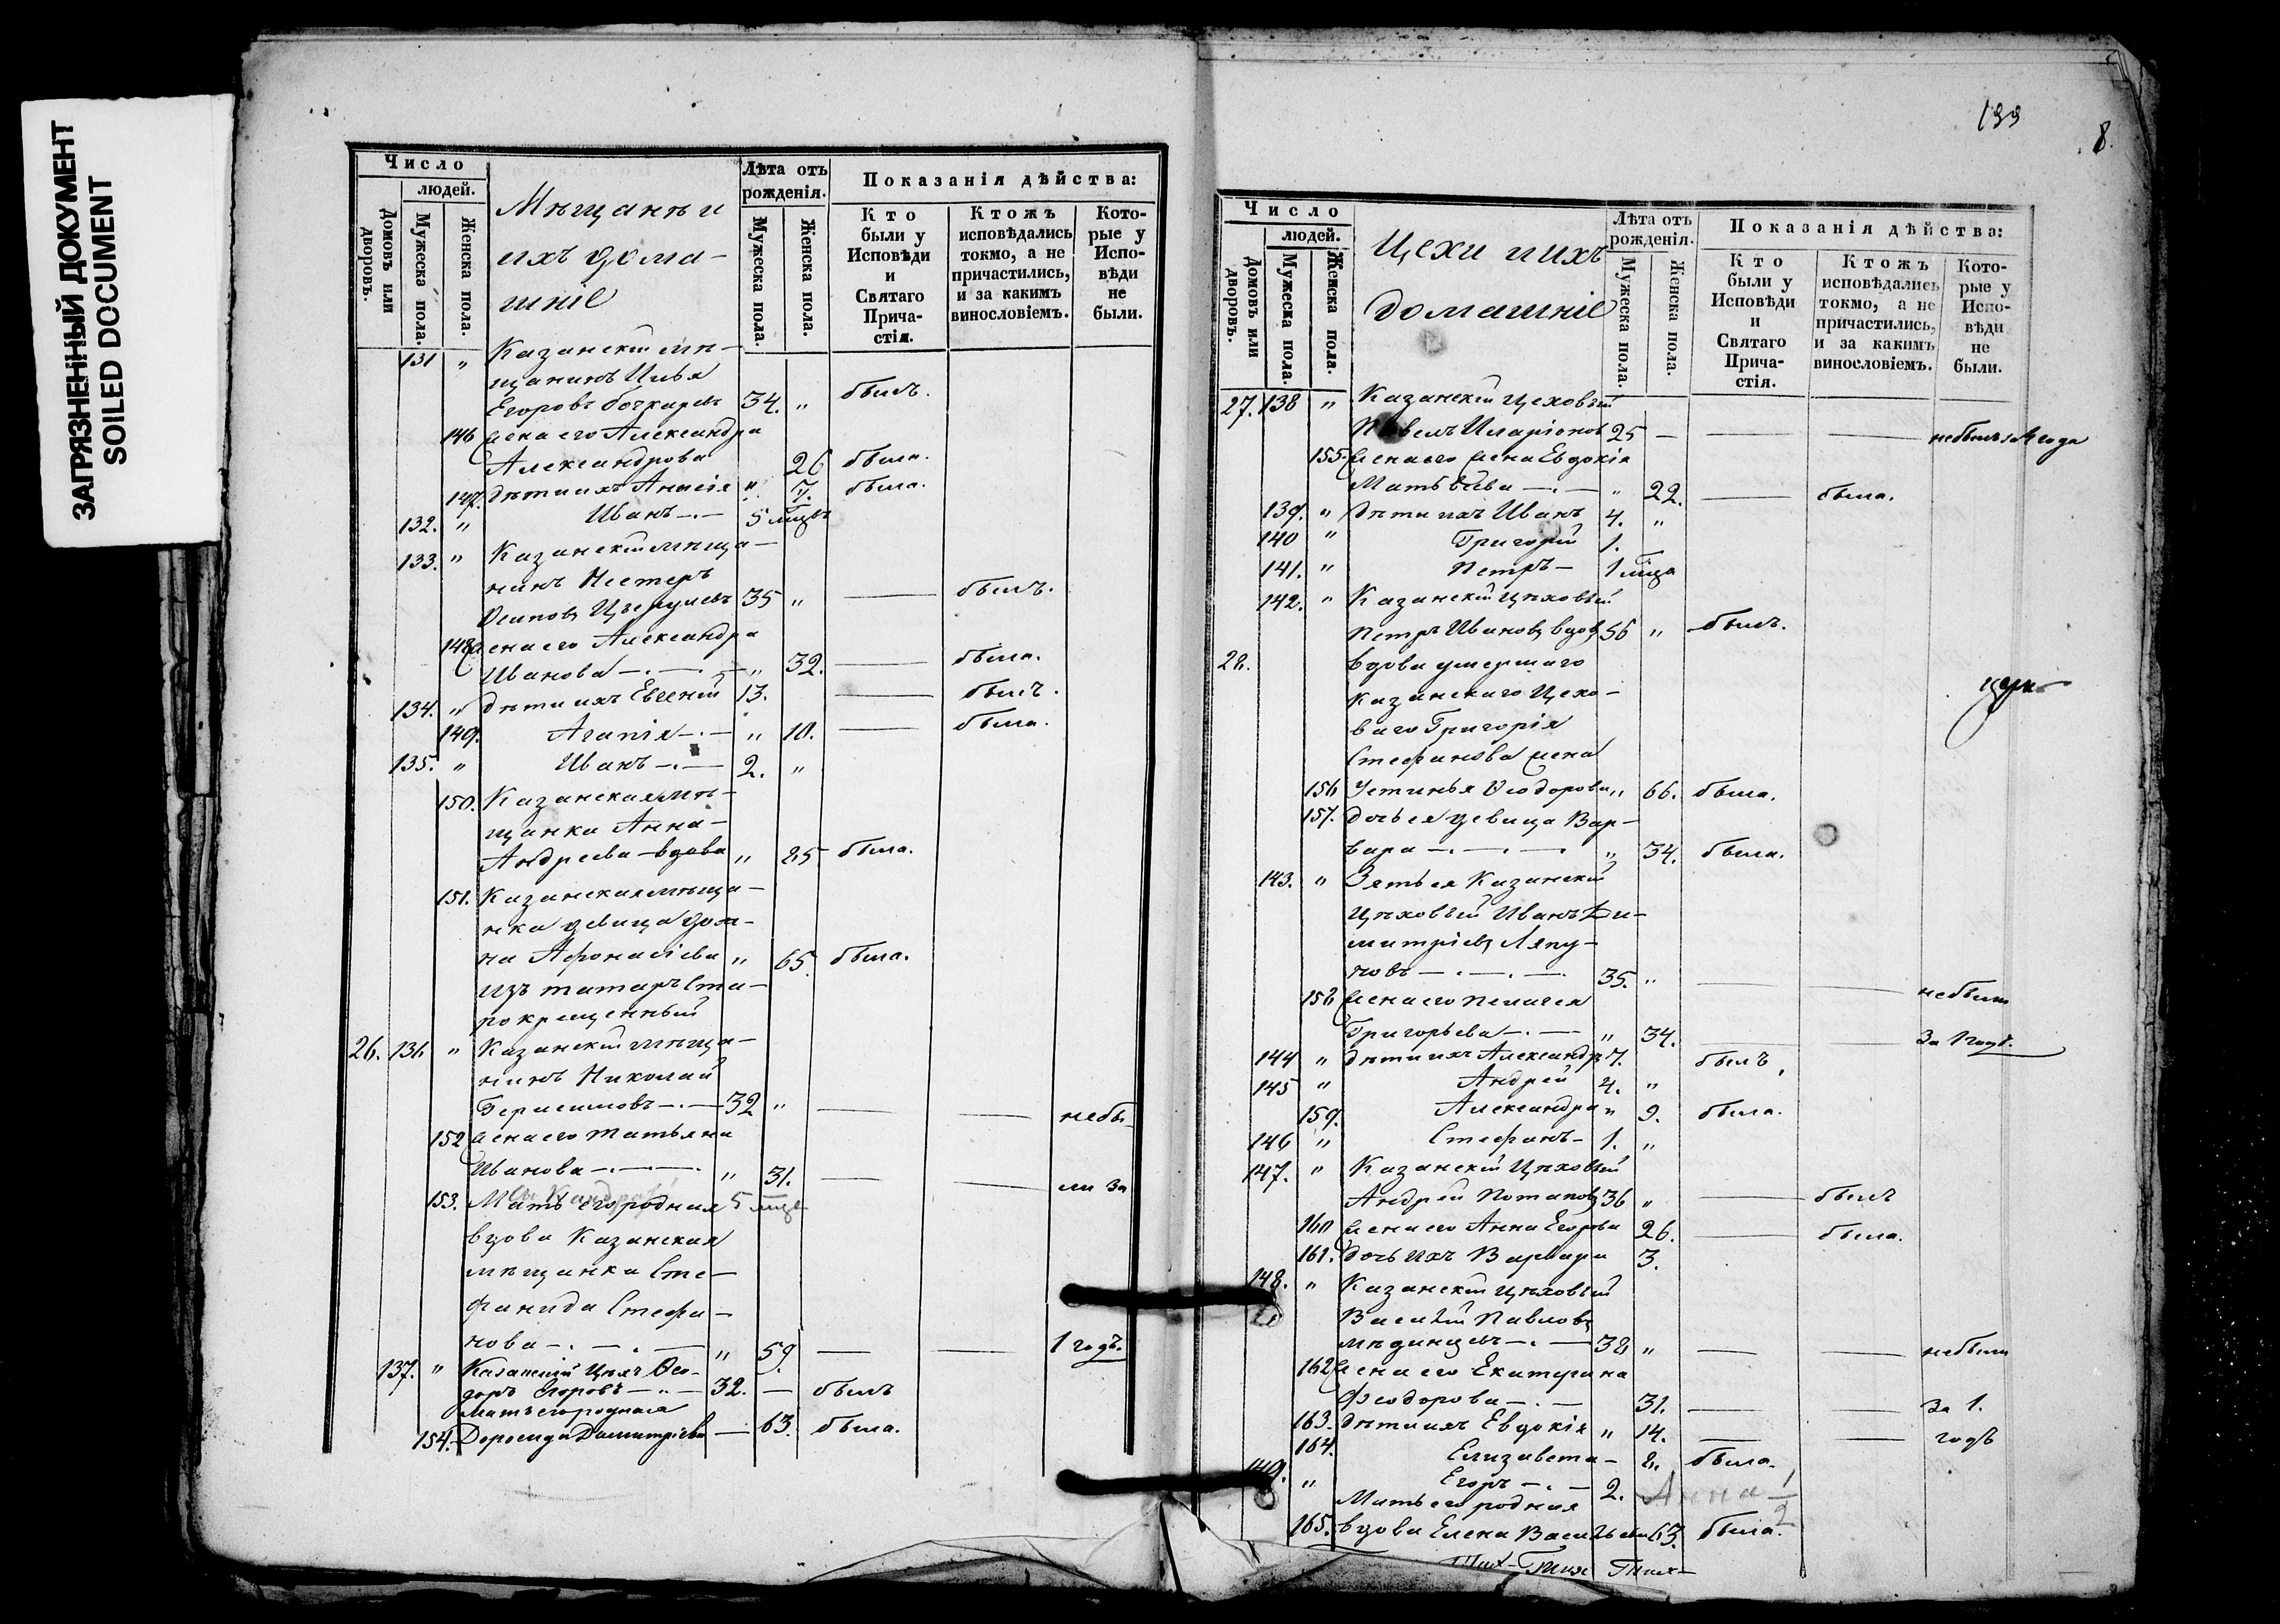 ЗАГРЯЗНЕННЫЙ ДОКУМЕНТ
SOILED DOCUMENT
Число
людей.
Домовъ или дворовъ.
Мужеска пола.
Женска пола.
Мѣщане и
ихъ дома-
шніе
Лѣта отъ рожденія.
Мужеска пола.
Женска пола.
Показанія дѣйства:
Кто были у Исповѣди и Святаго Прича-стія.
Ктожъ исповѣдались токмо, а не причастились, и за какимъ винословіемъ.
Кото-рые у Испо-вѣди не были.
131 " Казанскій мѣ-
щанинъ Илья
Егоровъ Бочкаревъ 34. " былъ.
146 Жена его Александра
Александрова 26 была.
147. Дѣти ихъ Анисія " 7. была.
132. " Иванъ 5 мцвъ
133. " Казанскій мѣща-
нинъ Нестеръ
Осиповъ 35 " былъ.
148 Жена его Александра
Иванова " 32. была.
134. " Дѣти ихъ Евгеній 13. былъ.
149. Агапія " 10. была.
135. " Иванъ 2. "
150. Казанская мѣ-
щанка Анна
Андреева вдова " 85 была.
151. Казанская мѣща-
нка девица Дом-
на Афонасіева " 65. была.
Изъ татаръ Ста-
рокрещенный
26. 136 " Казанскій мѣща-
нинъ Николай
Герасимовъ 32 " небы
152 Жена его Татьяна
Иванова " 31. ли за
153. Мать его родная 5 мцв
вдова Казанская
мѣщанка Сте-
фанида Стефа-
нова " 59. 1 годъ.
137. " Казанскій Цех. Ѳео-
доръ Егоровъ 32. былъ
Мать его родная
154. Доросида Дмитріева 63. была.
199
8.
Число
людей.
Домовъ или дворовъ.
Мужеска пола.
Женска пола.
Цехи и ихъ
домашніе
Лѣта отъ рожденія.
Мужеска пола.
Женска пола.
Показанія дѣйства:
Кто были у Исповѣди и Святаго Прича-стія.
Ктожъ исповѣдались токмо, а не причастились, и за какимъ винословіемъ.
Кото-рые у Испо-вѣди не были.
27. 138 " Казанскій Цеховый
Павелъ Иларіоновъ 25 небылъ года
155. Жена его Жена Евдокія
Матвѣева " 22. была.
139. " Дѣти ихъ Иванъ 4. "
140 " Григорій 1.
141. " Петръ 1 мца
142. " Казанскій Цѣховый
Петръ Ивановъ вдовъ 56 " былъ.
28. Вдова умершаго
Казанскаго Цехо-
ваго Григорія
Стефанова жена
156 Устинья Ѳеодорова " 66. была.
157. Дочь ея девица Вар-
вара " 34. была.
143. " Зять ея Казанскій
Цѣховый Иванъ Ди-
митріевъ Ляпу-
новъ 35. " небыли
158 Жена его Пелагея
Григорьева " 34. За 1 годъ.
144 " Дѣти ихъ Александръ 7. былъ
145 " Андрей 4. "
159. Александра " 9. была.
146 " Стефанъ 1. "
147. " Казанскій Цѣховый
Андрей Потаповъ 36 " былъ
160 Жена его Анна Егорова 26. была.
161. Дочь ихъ Варвара 3.
148. " Казанскій Цѣховый
Василій Павловъ
Мѣдинцевъ 38 " небыли
162 Жена его Екатерина
Феодорова 31. За 1.
163. Дѣти ихъ Евдокія " 14. годъ
164. Елизавета 8. была.
149. " Егоръ 2. Анна 1/2
Мать его родная
165. Вдова Елена Васильева 63. была.